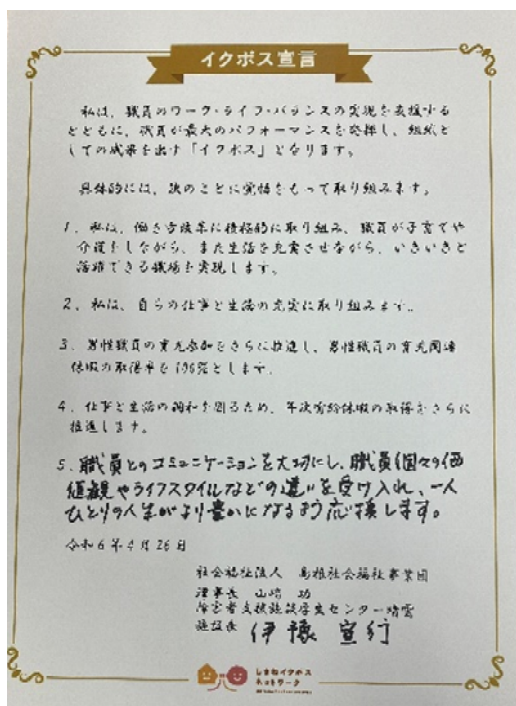 イクボス宣言
私は、職員のワーク・ライフ・バランスの実現を支援する
とともに、職員が最大のパフォーマンスを発揮し、組織と
しての成果を出す「イクボス」となります。
具体的には、次のことに覚悟をもって取り組みます。
1. 私は、働き方改革に積極的に取り組み、職員が子育てや
介護をしながら、また生活を充実させながら、いきいきと
活躍できる職場を実現します。
2. 私は、自らの仕事と生活の充実に取り組みます。
3. 男性職員の育児参加をさらに推進し、男性職員の育児関連
休暇の取得率を100%とします。
4. 仕事と生活の調和を図るため、年次有給休暇の取得をさらに
推進します。
5. 職員とのコミュニケーションを大切にし、職員個々の価
値観やライフスタイルなどの違いを受け入れ、一人
ひとりの人生がより豊かになるよう応援します。
令和6年4月26日
社会福祉法人 島根社会福祉事業団
理事長 山﨑 功
障害者支援施設厚生センター晴雲
施設長 伊藤 宣行
しまねイクボス
ネットワーク